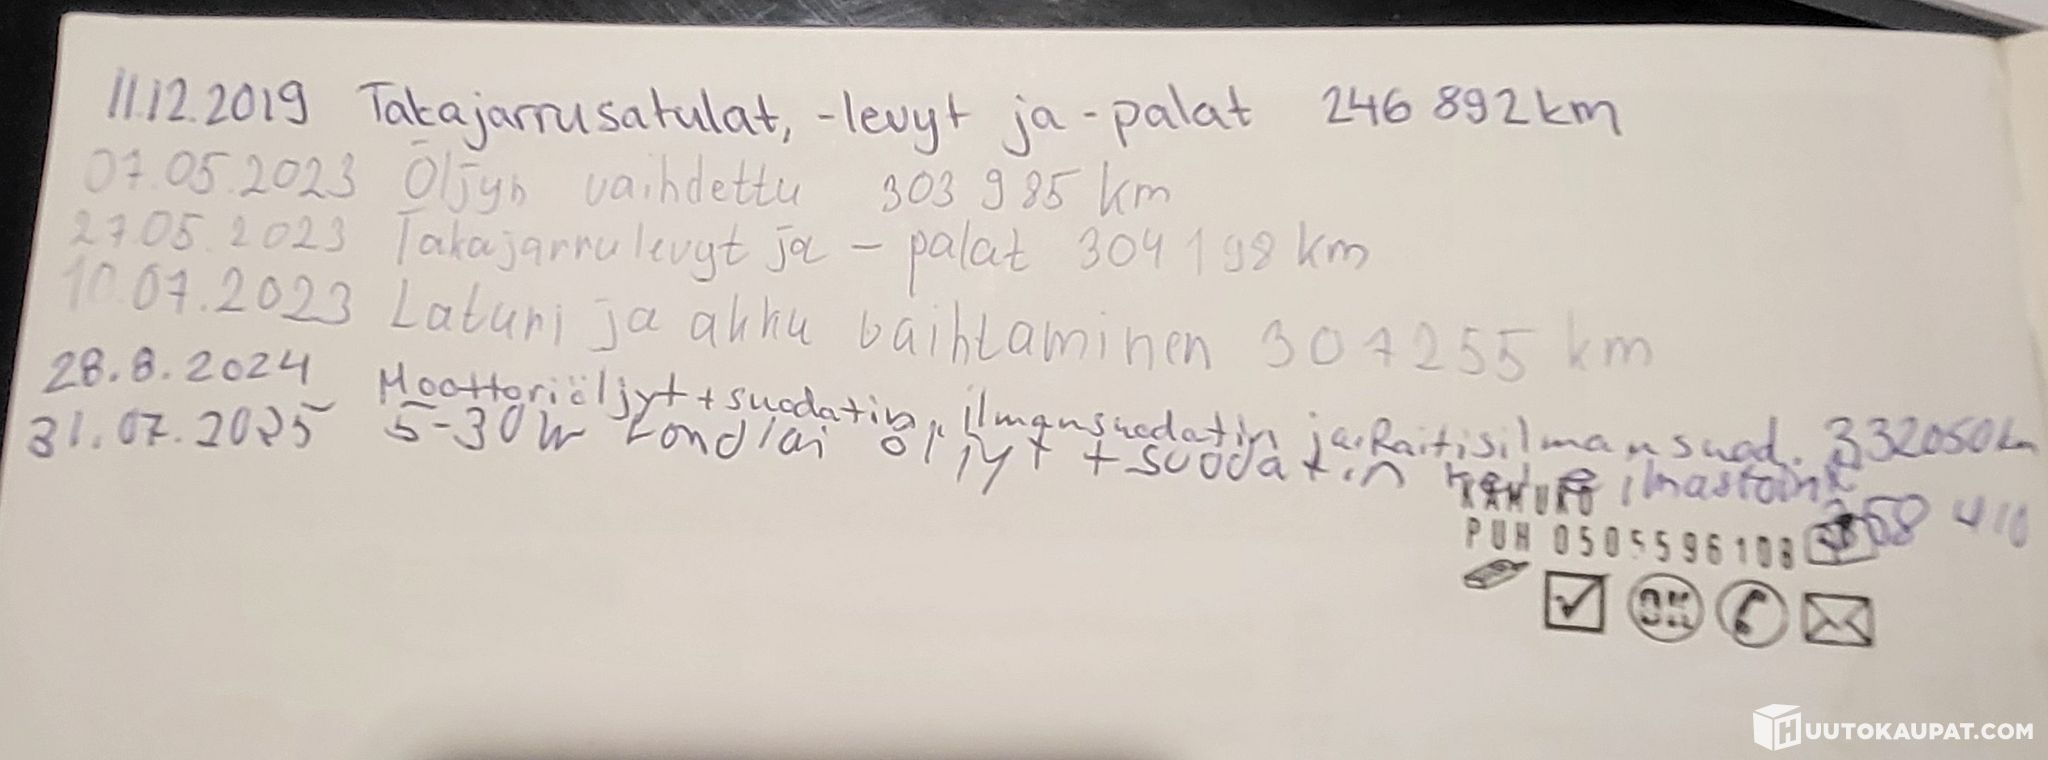 11.12.2019 Takajarrusatulat, -levyt ja -palat 246 892 km
07.05.2023 Öljyn vaihdettu 303 985 km
27.05.2023 Takajarrulevyt ja - palat 304 198 km
10.07.2023 Laturi ja akku vaihtaminen 307255 km
28.8.2024 Moottoriöljyt + suodatin, ilmansuodatin ja Raitisilmansuod. 332050km
31.07.2025 5-30W öljyt + suodatin
PUH 0505596108
OK
HUUTOKAUPAT.COM